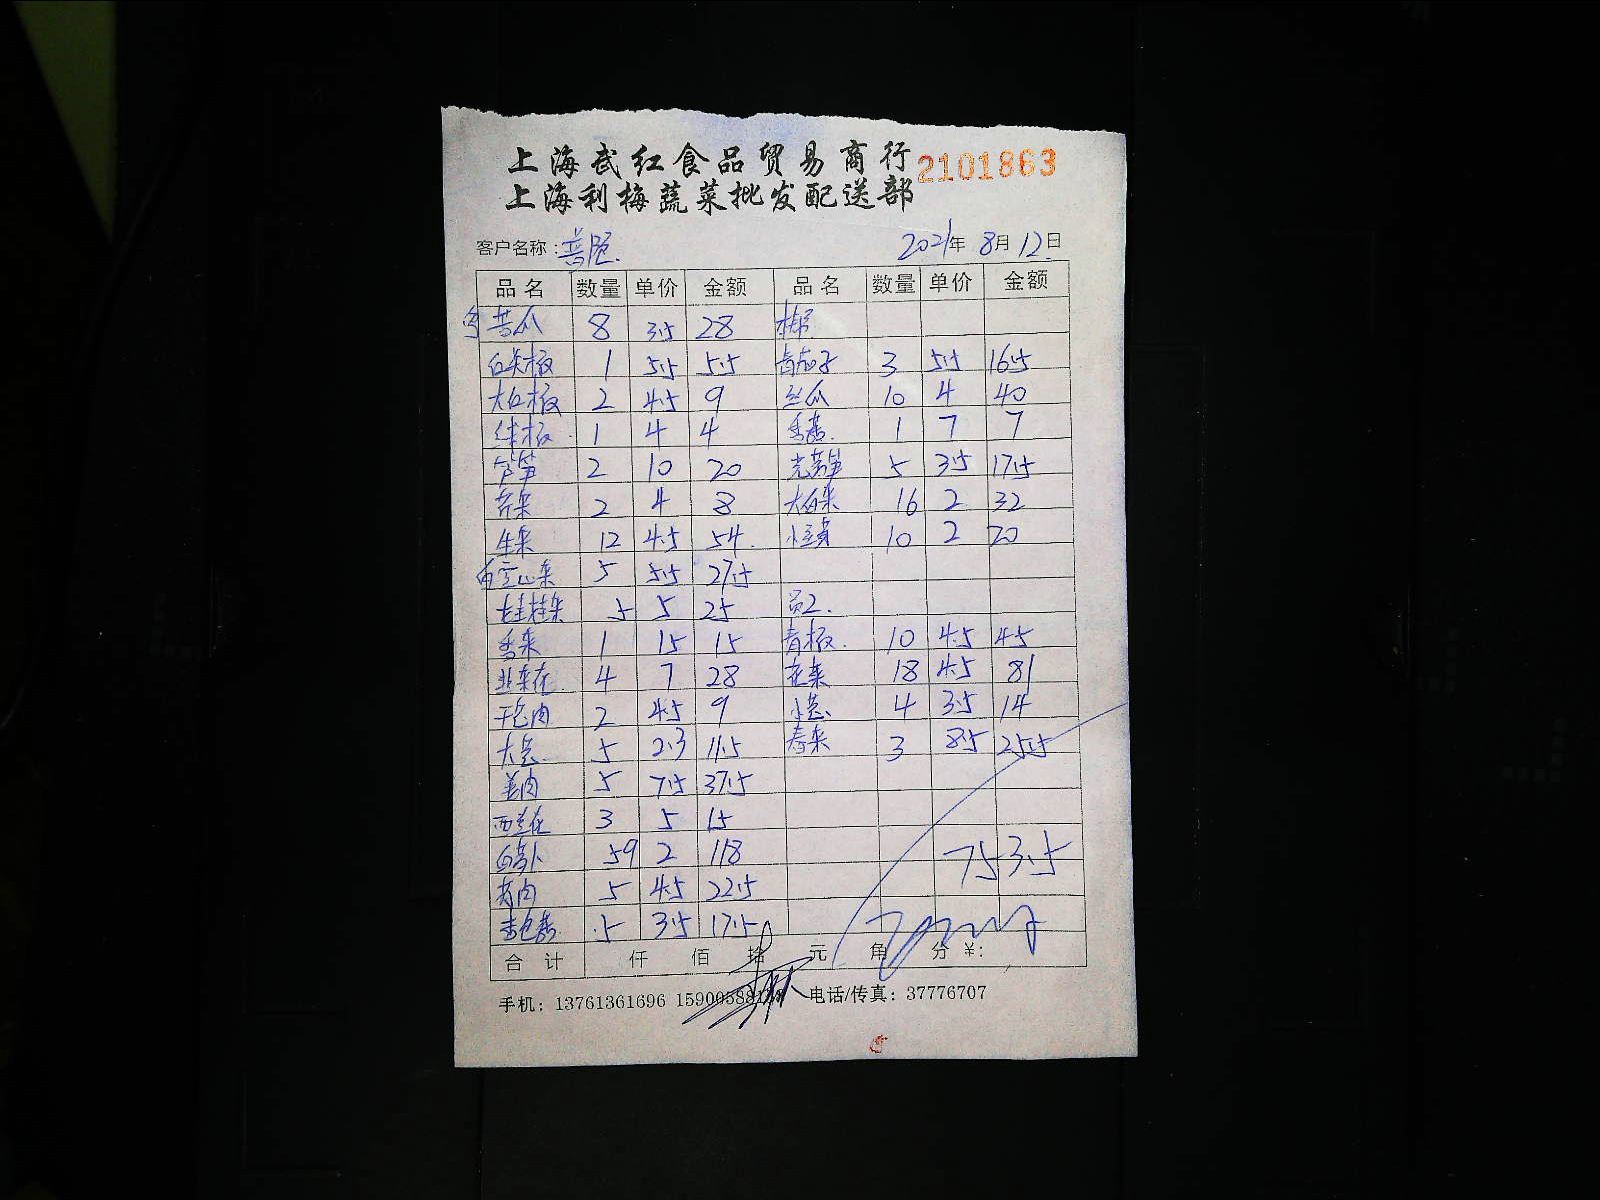 上海武红食品贸易商行 2101863
上海利梅蔬菜批发配送部
客户名称: 2021年 8月 12日
品名 数量 单价 金额 品名 数量 单价 金额
苦瓜 8 3.5 28
1 5.5 5.5 青茄子 3 5.5 16.5
大红椒 2 4.5 9 丝瓜 10 4 40
1 4 4 香葱 1 7 7
芦笋 2 10 20 光莴笋 5 3.5 17.5
芹菜 2 4 8 大白菜 16 2 32
生菜 12 4.5 54 10 2 20
5 5.5 27.5
5 5 25 员工
香菜 1 15 15 青椒 10 4.5 45
韭菜花 4 7 28 花菜 18 4.5 81
2 4.5 9 小葱 4 3.5 14
大葱 5 2.3 11.5 3 8.5 25.5
姜肉 5 7.5 37.5
西兰花 3 5 15
白萝卜 59 2 118 753.5
5 4.5 22.5
5 3.5 17.5
合计 仟 佰 拾 元 角 分 ¥:
手机: 13761361696 电话/传真: 37776707